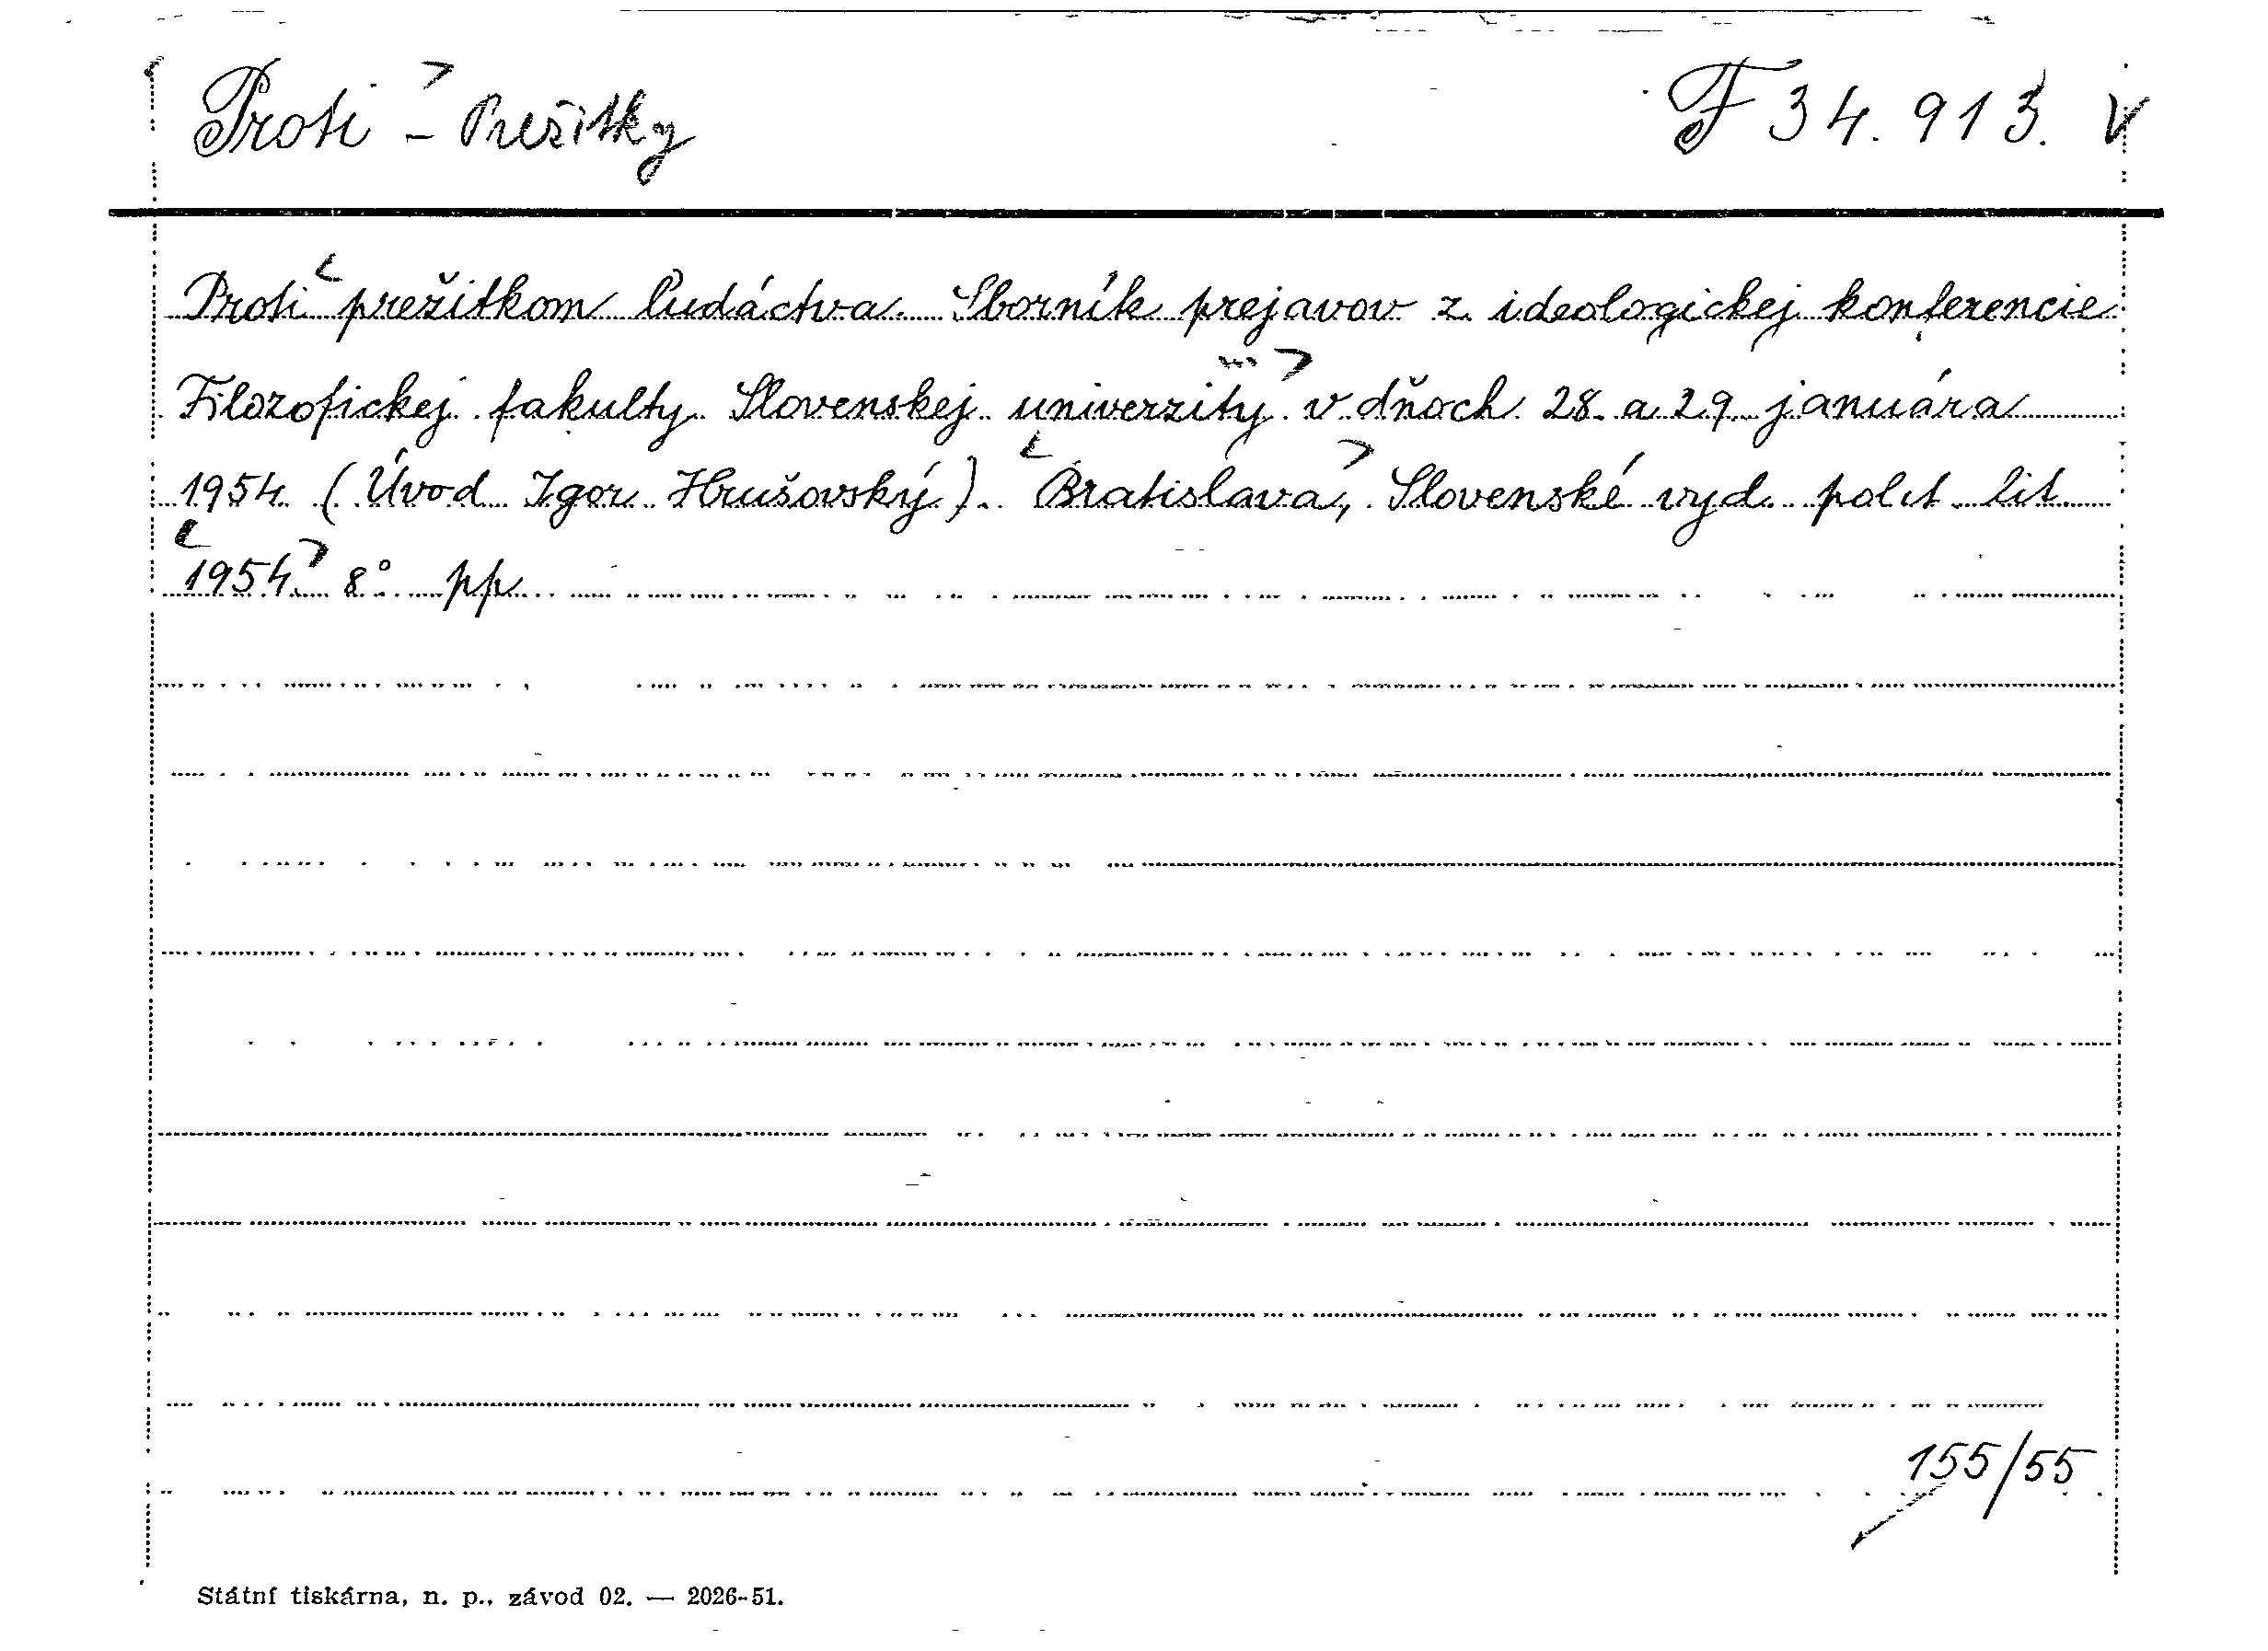 Proti - Prežitky F 34.913. V
Proti prežitkom ľudáctva. Sborník prejavov z ideologickej konferencie
Filozofickej fakulty Slovenskej univerzity v dňoch 28. a 29. januára
1954. (Úvod Igor Hrušovský). Bratislava, Slovenské vyd. polit lit.
1954. 8° pp.
155/55
Státní tiskárna, n. p., závod 02. — 2026-51.